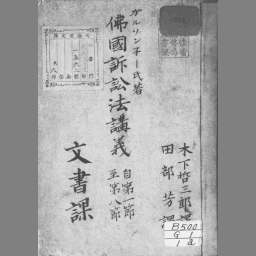 木下哲三郎
田部芳譯
ガルソン子ー氏著
佛國訴訟法講義
自第一節
至第八節
文書課
B500
G1
1a